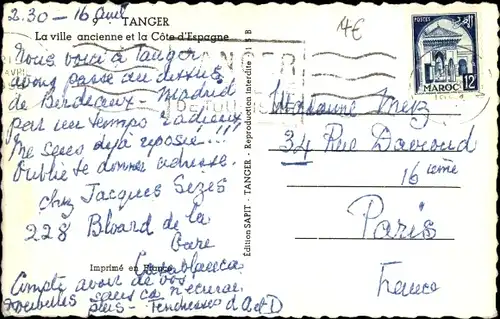 2.30 - 16 Avril
9. - TANGER
La ville ancienne et la Côte d'Espagne
Nous voici à Tanger
avons passé au dessus
de Bordeaux - Madrid
par un temps radieux
me sens déjà reposée!!!
Oublié te donner adresse.
chez Jacques Sezés
228 Blvard de la
Gare
Casablanca
Imprimé en France
Compte avoir de vos
nouvelles sans ça n'écrirai
plus - Tendresses d'A et D
Edition SAPIT - TANGER - Reproduction interdite
TANGER
DE TOURISME
4€
POSTES
MAROC 12
Madame Metz
34 Rue Davioud
16 ième
Paris
France